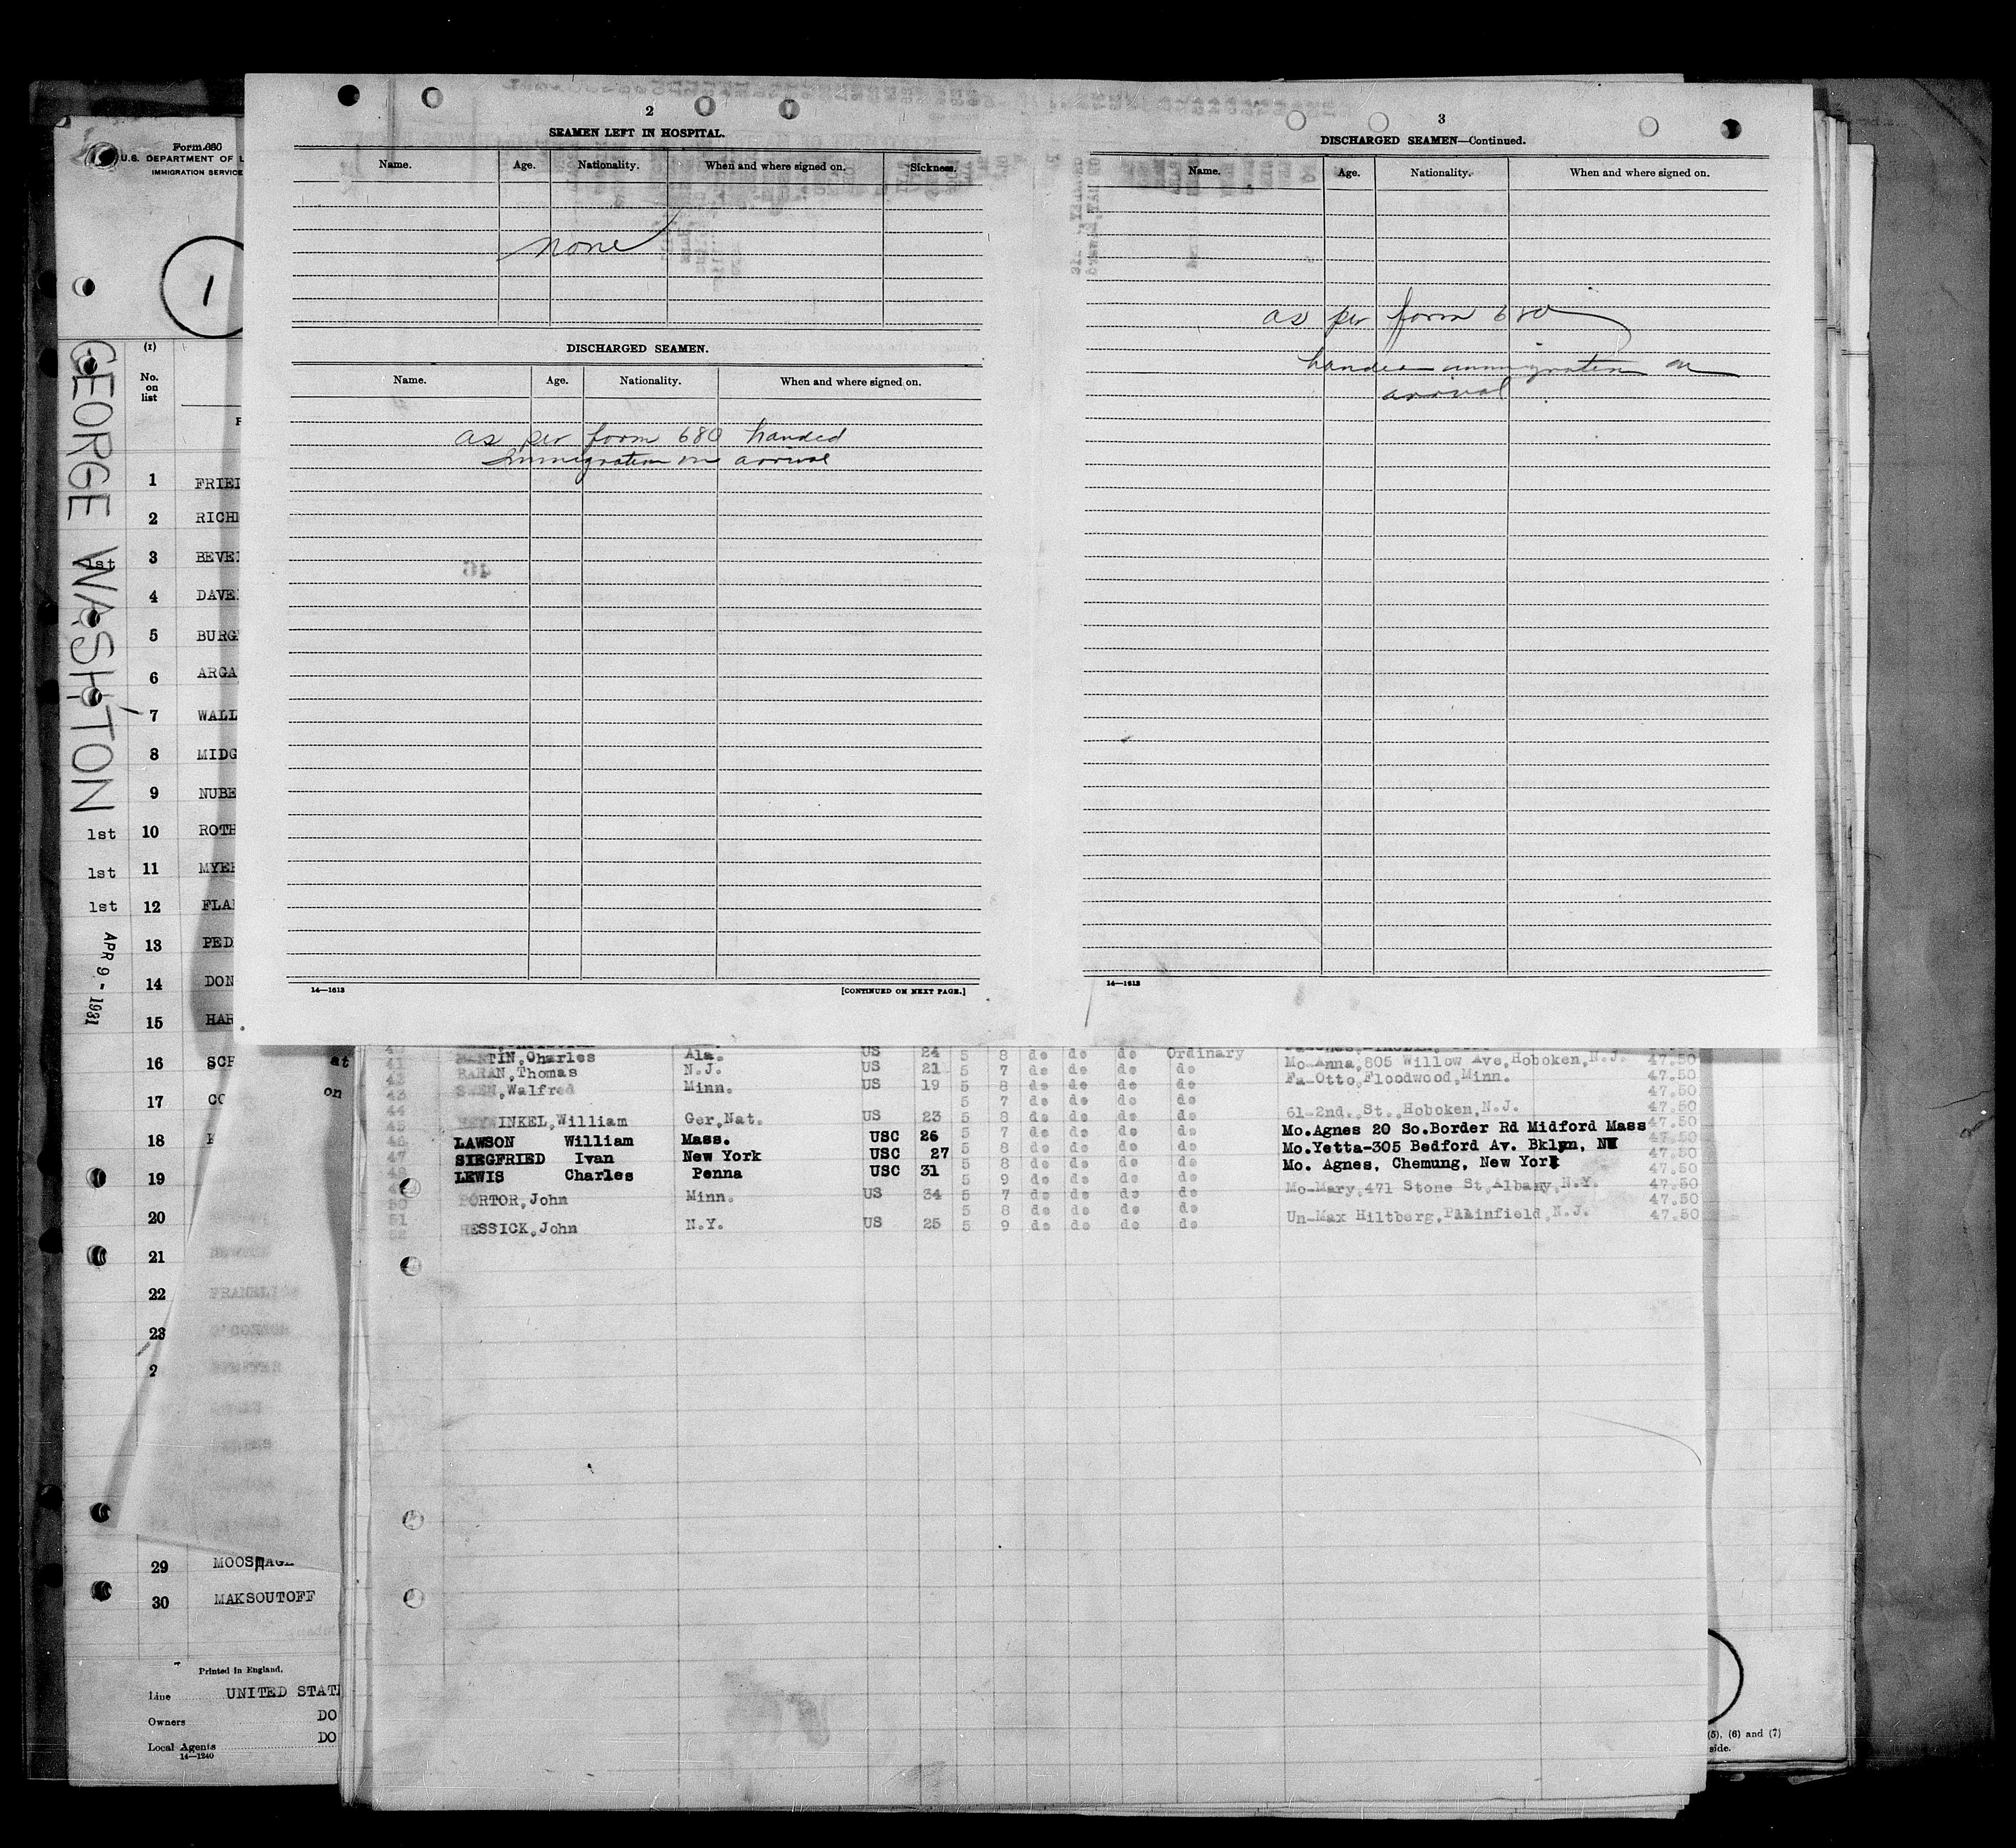 Form 680
U.S. DEPARTMENT OF L
IMMIGRATION SERVICE
1
GEORGE WASH'TON
APR 9 - 1931
(1)
No.
on
list
1 FRIE
2 RICH
1st 3 BEVE
4 DAVE
5 BURG
6 ARGA
7 WALL
8 MIDG
9 NUBE
1st 10 ROTH
1st 11 MYE
1st 12 FLA
13 PED
14 DON
15 HAR
16 SC at
17 CO on
18
19
20
21
22 FRANKLI
23 O'CONNOR
2
29 MOOS
30 MAKSOUTOFF
Printed in England.
Line UNITED STAT
Owners DO
Local Agents DO
14—1240
2
SEAMEN LEFT IN HOSPITAL.
Name. Age. Nationality. When and where signed on. Sickness.
None
DISCHARGED SEAMEN.
Name. Age. Nationality. When and where signed on.
as per form 680 handed
Immigration on arrival
14—1613 [CONTINUED ON NEXT PAGE.]
3
DISCHARGED SEAMEN—Continued.
Name. Age. Nationality. When and where signed on.
as per form 680
handed immigration on
arrival
14—1613
41 MARTIN,Charles Ala. US 24 5 8 do do do Ordinary
BARAN,Thomas N.J. US 21 5 7 do do do do Mo-Anna,805 Willow Ave,Hoboken,N.J. 47.50
43 Walfred Minn. US 19 5 8 do do do do Fa-Otto,Floodwood,Minn. 47.50
44 5 7 do do do do 47.50
45 WINKEL,William Ger.Nat. US 23 5 8 do do do do 61-2nd.,St.,Hoboken,N.J. 47.50
46 LAWSON William Mass. USC 26 5 7 do do do do Mo.Agnes 20 So.Border Rd Midford Mass 47.50
47 SIEGFRIED Ivan New York USC 27 5 8 do do do do Mo.Yetta-305 Bedford Av. Bklyn, NY 47.50
48 LEWIS Charles Penna USC 31 5 8 do do do do Mo. Agnes, Chemung, New York 47.50
5 9 do do do do
50 PORTOR,John Minn. US 34 5 7 do do do do Mo-Mary,471 Stone St,Albany,N.Y. 47.50
51 5 8 do do do do 47.50
52 HESSICK,John N.Y. US 25 5 9 do do do do Un-Max Hiltberg,Plainfield,N.J. 47.50
(5), (6) and (7)
side.